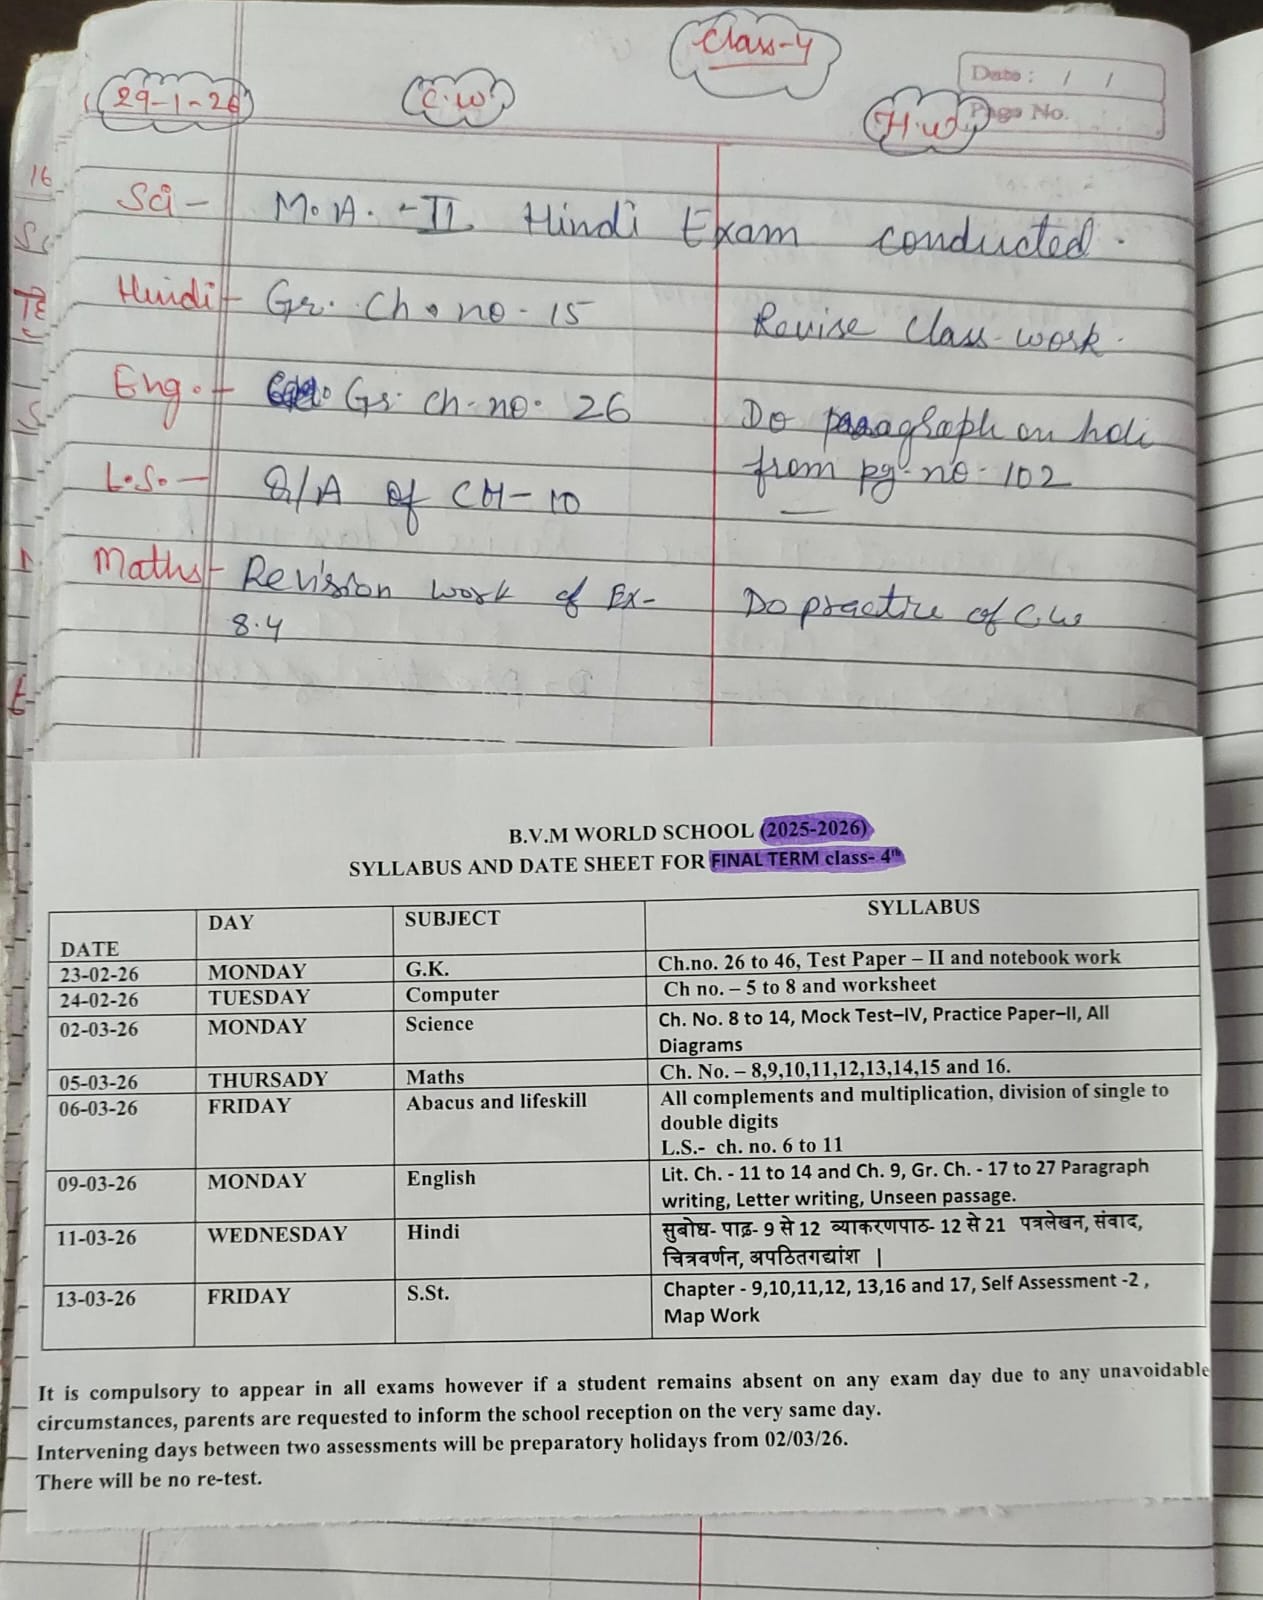 Class-4
Date : / /
Page No.
29-1-26 C.W H.W
Sci - M.A. - II Hindi Exam conducted.
Hindi - Gr. Ch. no - 15 Revise Class-work.
Eng. - Gr. ch. no. 26 Do paragraph on holi
from pg. no - 102
L.S. - Q/A of CH-10
Maths - Revision work of Ex- Do practice of C.W
8.4
B.V.M WORLD SCHOOL (2025-2026)
SYLLABUS AND DATE SHEET FOR FINAL TERM class- 4th
DATE DAY SUBJECT SYLLABUS
23-02-26 MONDAY G.K. Ch.no. 26 to 46, Test Paper – II and notebook work
24-02-26 TUESDAY Computer Ch no. – 5 to 8 and worksheet
02-03-26 MONDAY Science Ch. No. 8 to 14, Mock Test–IV, Practice Paper–II, All
Diagrams
05-03-26 THURSADY Maths Ch. No. – 8,9,10,11,12,13,14,15 and 16.
06-03-26 FRIDAY Abacus and lifeskill All complements and multiplication, division of single to
double digits
L.S.- ch. no. 6 to 11
09-03-26 MONDAY English Lit. Ch. - 11 to 14 and Ch. 9, Gr. Ch. - 17 to 27 Paragraph
writing, Letter writing, Unseen passage.
11-03-26 WEDNESDAY Hindi सुबोध- पाढ़- 9 से 12 व्याकरणपाठ- 12 से 21 पत्रलेखन, संवाद,
चित्रवर्णन, अपठितगद्यांश |
13-03-26 FRIDAY S.St. Chapter - 9,10,11,12, 13,16 and 17, Self Assessment -2 ,
Map Work
It is compulsory to appear in all exams however if a student remains absent on any exam day due to any unavoidable
circumstances, parents are requested to inform the school reception on the very same day.
Intervening days between two assessments will be preparatory holidays from 02/03/26.
There will be no re-test.